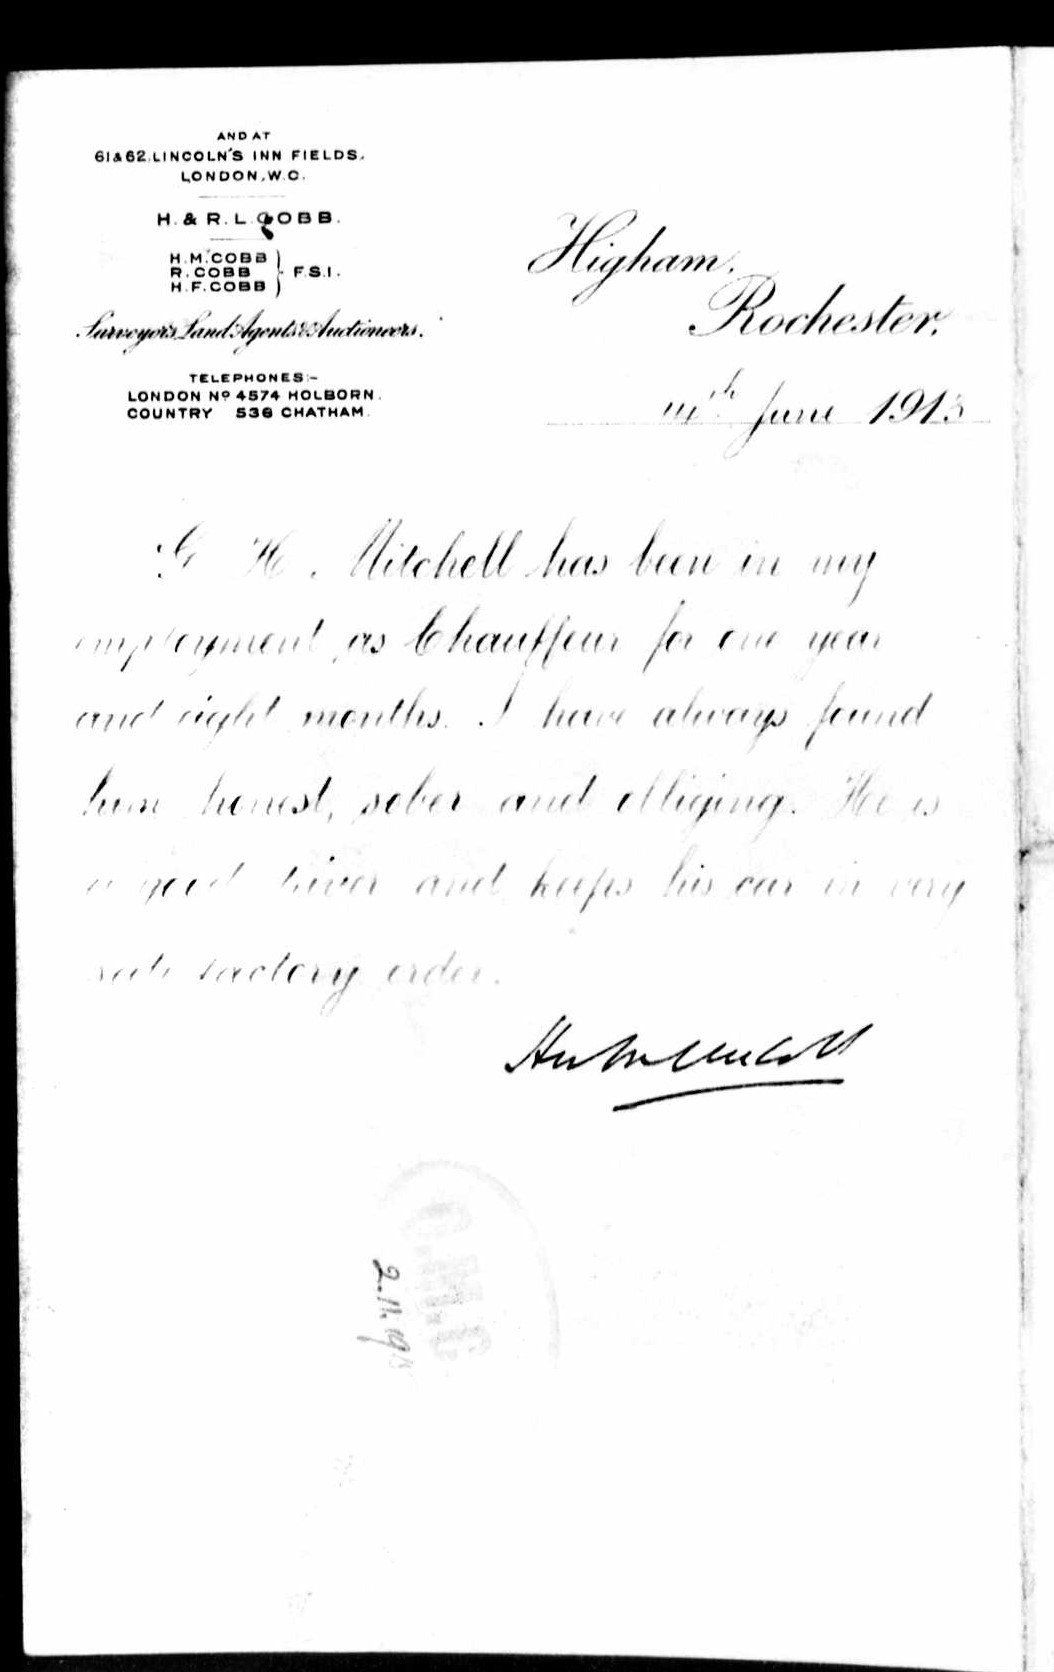 AND AT
61 & 62, LINCOLN'S INN FIELDS,
LONDON, W.C.
H. & R. L. COBB.
H. M. COBB
R. COBB
H. F. COBB
F.S.I.
Surveyors, Land Agents & Auctioneers.
TELEPHONES:-
LONDON Nº 4574 HOLBORN.
COUNTRY 536 CHATHAM.
Higham,
Rochester,
14th June 1913
G H. Mitchell has been in my
employment as Chauffeur for one year
and eight months. I have always found
him honest, sober and obliging. He is
a good driver and keeps his car in very
satisfactory order.
2.11.